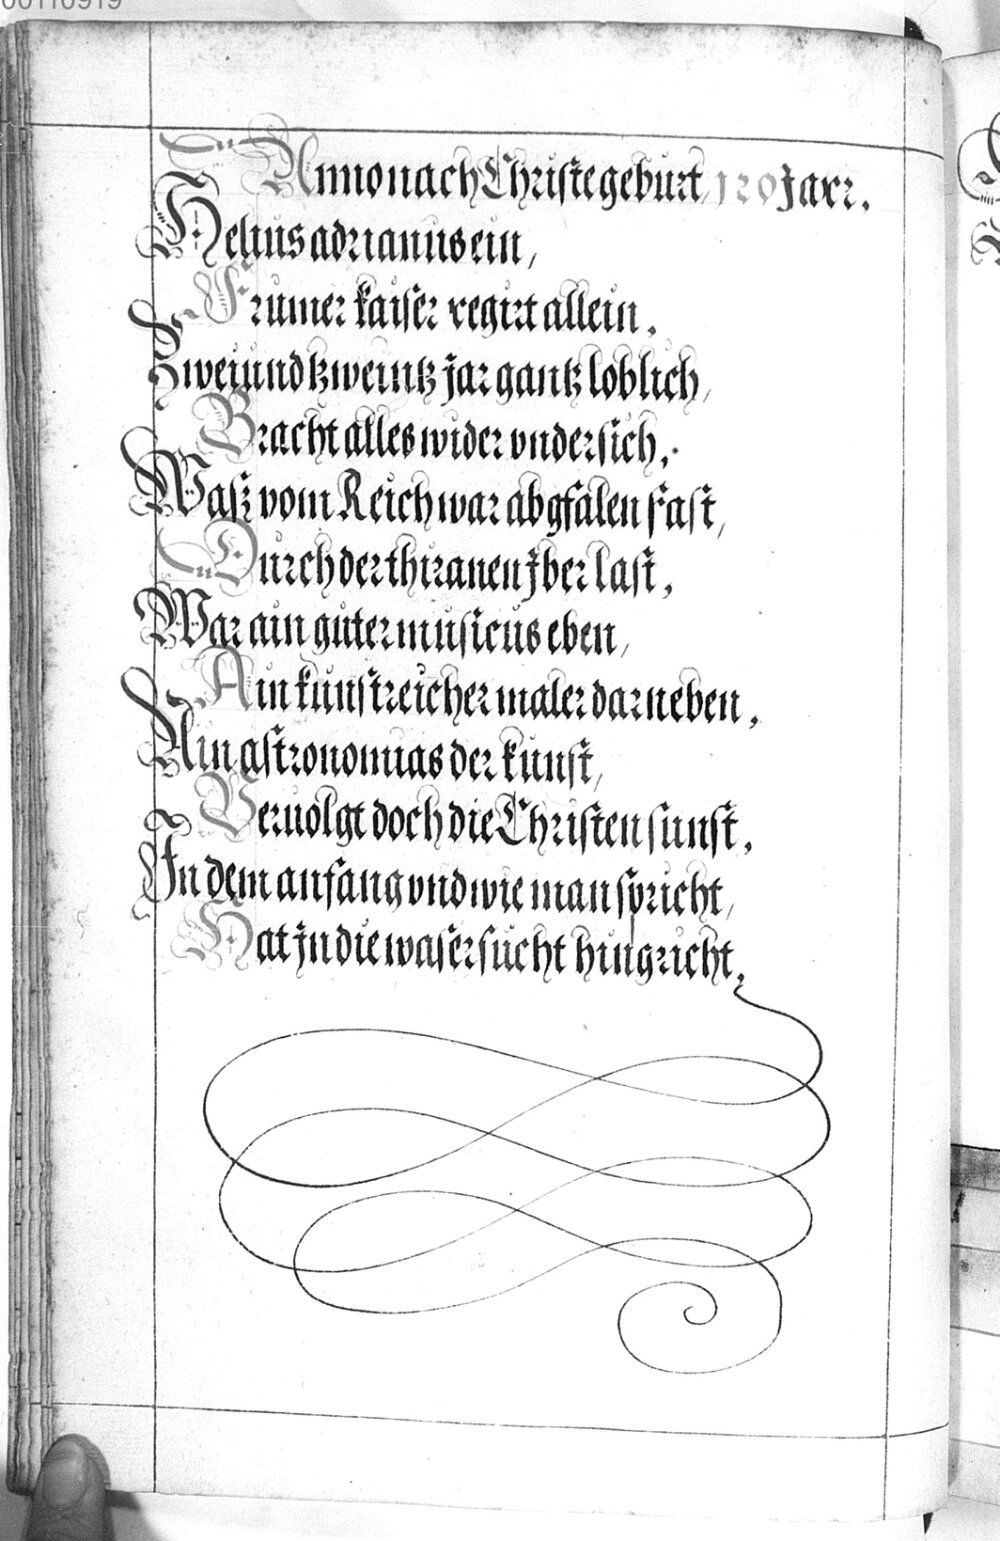 00110919
Anno nach Christe geburt 120 Jarr.
Helius adrianus ein,
Frumer kaiser regirt allein.
Zwei und tzweintz jar gantz loblich,
Bracht alles wider vndersich.
Wasz vom Reich war abgfalen fast,
Durch der thiranen Jber last,
War ain guter musicus eben,
Ain kunstreicher maler darneben,
Ain astronomuas der kunst,
Veruolgt doch die Christen sunst,
In dem anfang vnd wie man spricht,
Hat Jn die wasersucht hingricht.